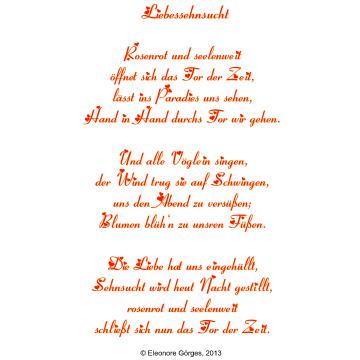 Liebessehnsucht
Rosenrot und seelenweit
öffnet sich das Tor der Zeit,
lässt ins Paradies uns sehen,
Hand in Hand durchs Tor wir gehen.
Und alle Vöglein singen,
der Wind trug sie auf Schwingen,
uns den Abend zu versüßen;
Blumen blüh'n zu unsren Füßen.
Die Liebe hat uns eingehüllt,
Sehnsucht wird heut Nacht gestillt,
rosenrot und seelenweit
schließt sich nun das Tor der Zeit.
© Eleonore Görges, 2013